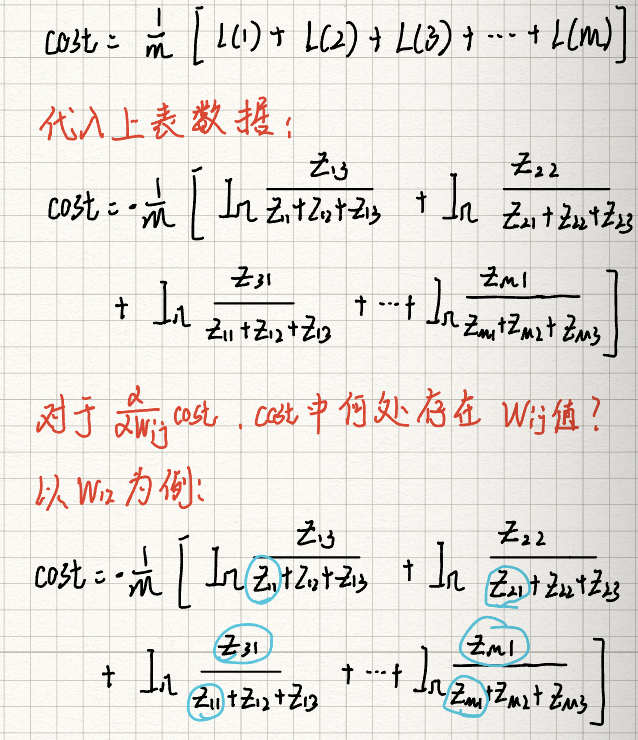 cost = 1/m [ L(1) + L(2) + L(3) + ··· + L(m) ]
代入上表数据：
cost = -1/m [ ln z₁₃/(z₁₁+z₁₂+z₁₃) + ln z₂₂/(z₂₁+z₂₂+z₂₃)
+ ln z₃₁/(z₁₁+z₁₂+z₁₃) + ··· + ln zₘ₁/(zₘ₁+zₘ₂+zₘ₃) ]
对于 α/αWᵢⱼ cost , cost中何处存在 Wᵢⱼ值？
以 W₁₂ 为例：
cost = -1/m [ ln z₁₃/(z₁₁+z₁₂+z₁₃) + ln z₂₂/(z₂₁+z₂₂+z₂₃)
+ ln z₃₁/(z₁₁+z₁₂+z₁₃) + ··· + ln zₘ₁/(zₘ₁+zₘ₂+zₘ₃) ]